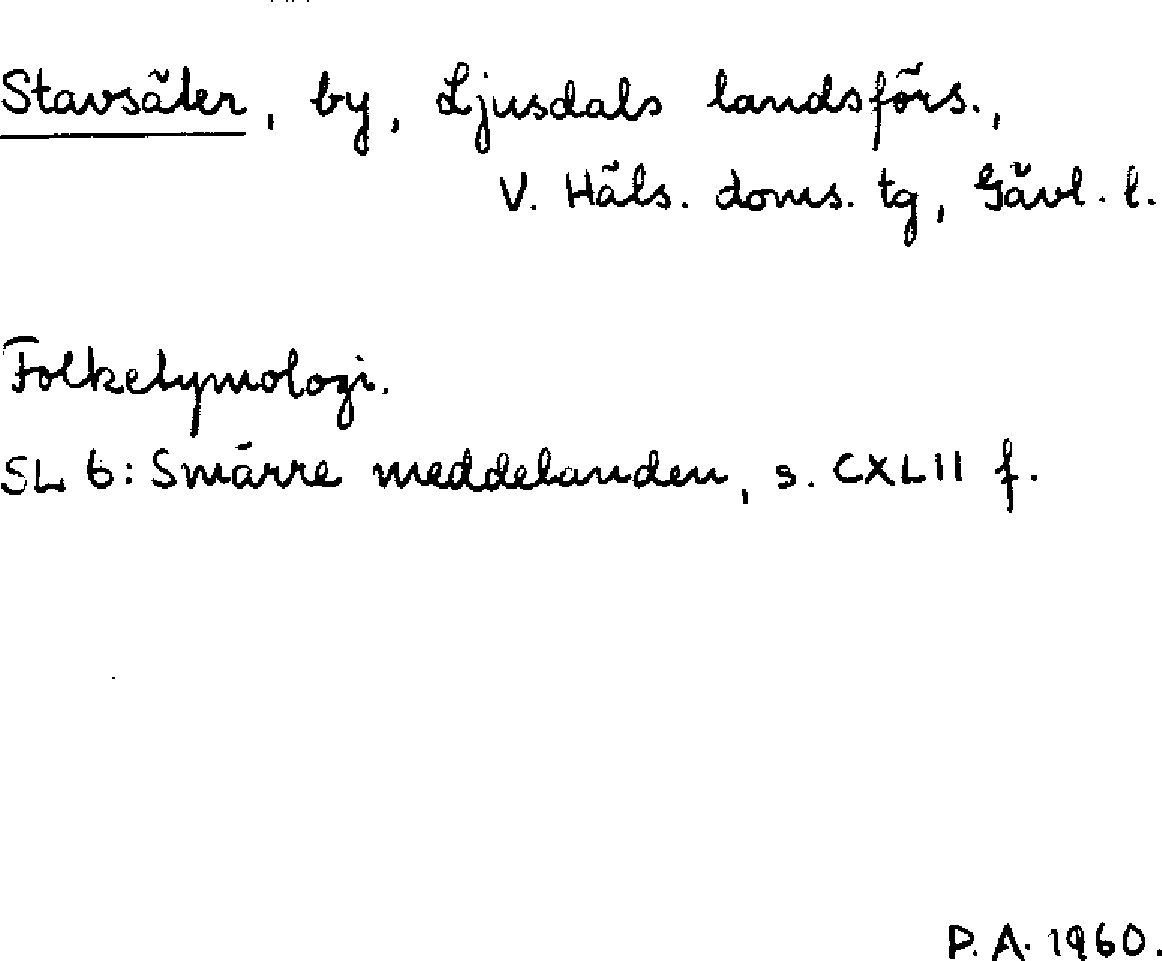 Stavsäter, by, Ljusdals landsförs.,
V. Häls. doms. tg, Gävl. l.
Folketymologi.
SL 6: Smärre meddelanden, s. CXLII f.
P. A. 1960.